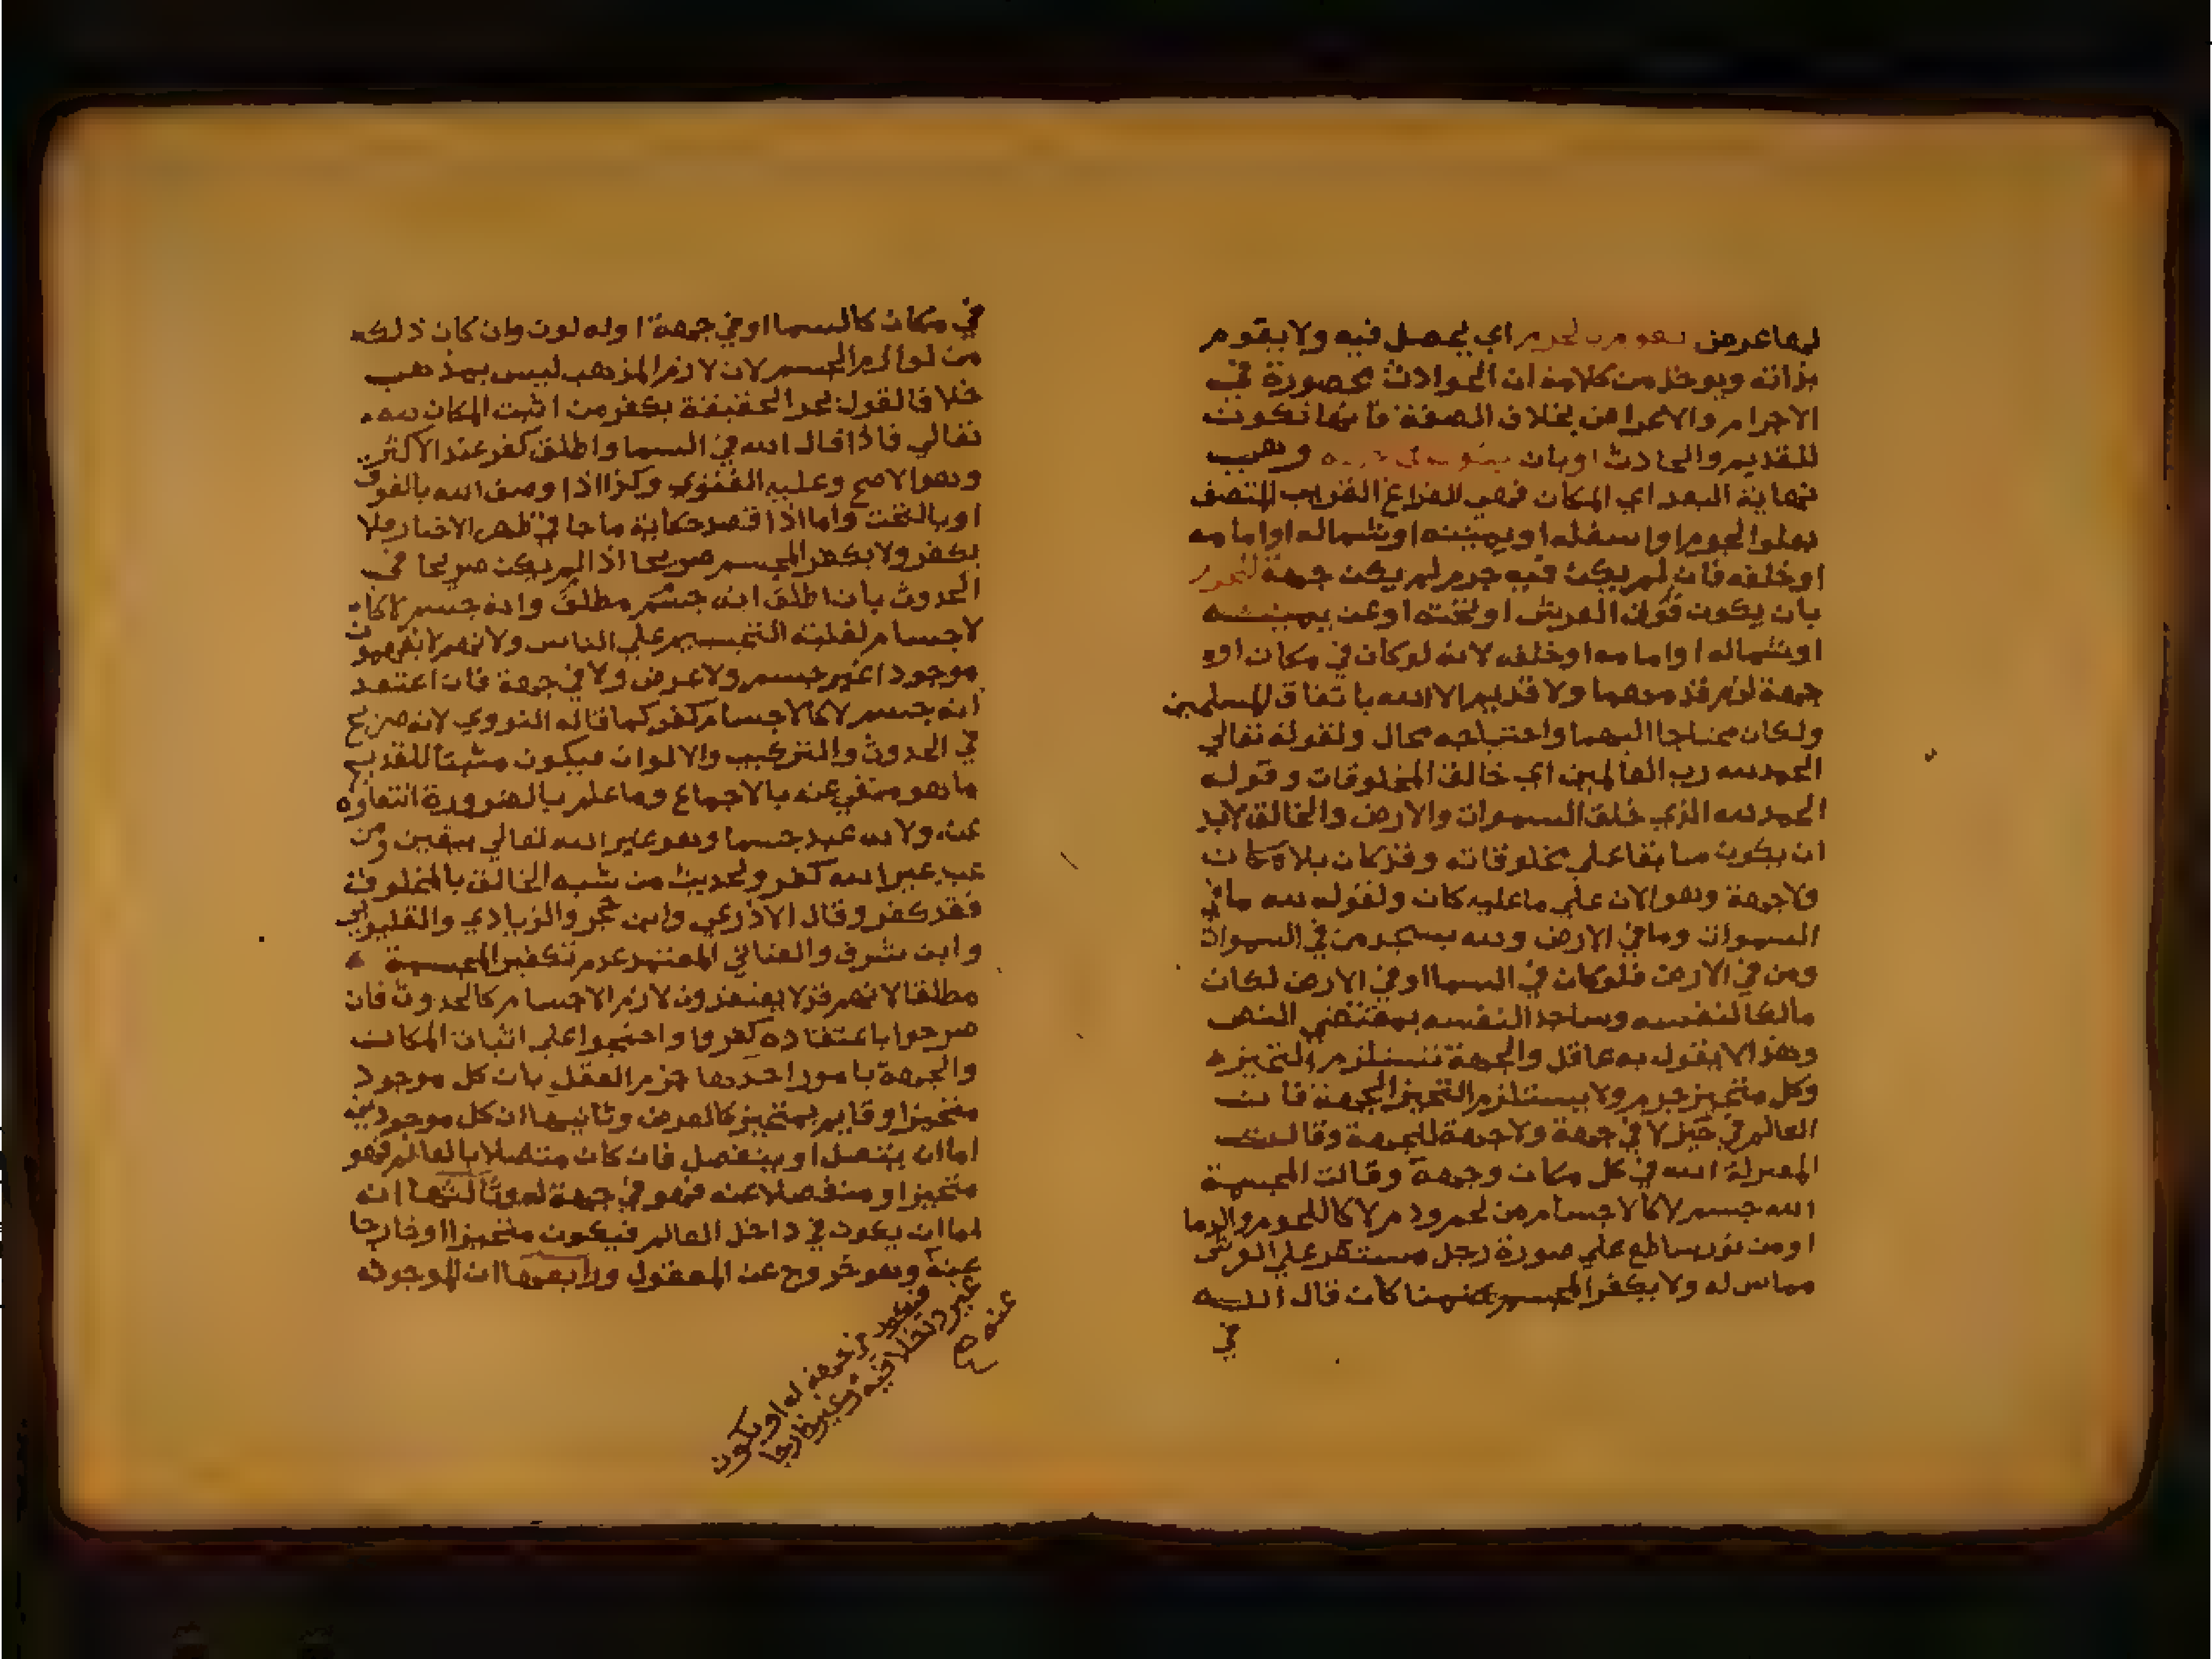 لها عرض يقوم بالجرم اي يحصل فيه ولا يقوم
بذاته ويوخذ من كلامه ان الحوادث محصورة في
الاجرام والاعراض بخلاف الصفة فانها تكون
للقديم والحادث او بان يكون في جهة وهي
نهاية البعد اي المكان فهي الفراغ القريب المتصف
بعلوا لجرم او اسفله او يمينه او شماله او امامه
او خلفه فان لم يكن فيه جرم لم يكن جهة للجرم
بان يكون فوق العرش او تحته او عن يمينه
او شماله او امامه او خلفه لانه لو كان في مكان او
جهة لزم قدمهما ولا قديم الا الله باتفاق المسلمين
ولكان محتاجا اليهما واحتياجه محال ولقوله تعالي
الحمد لله رب العالمين اي خالق المخلوقات وقوله
الحمد لله الذي خلق السموات والارض والخالق لابد
ان يكون سابقا علي مخلوقاته وقد كان بلا مكان
ولا جهة وهو الان علي ما عليه كان ولقوله لله ما في
السموات وما في الارض ولله يسجد من في السموات
ومن في الارض فلو كان في السما او في الارض لكان
مالكا لنفسه وساجدا لنفسه بمقتضي النص
وهذا لا يقول به عاقل والجهة تستلزم التحيز
وكل متحيز جرم ولا يستلزم التحيز الجهة فان
العالم في حيز لا في جهة ولا جهة للجهة وقالت
المعتزلة الله في كل مكان وجهة وقالت المجسمة
الله جسم لا كالاجسام من لحم ودم لا كاللحوم والدما
او من نور ساطع علي صورة رجل مستقر علي العرش
مماس له ولا يكفر المجسم منهما كان قال الله
في
في مكان كالسما او في جهة او له لون وان كان ذلك
من لوازم الجسم لان لازم المذهب ليس بمذهب
خلافا لقول بحر الحقيقة يكفر من اثبت المكان لله
تعالي فاذا قال الله في السما واطلق كفر عند الاكثر
وهو الاصح وعليه الفتوي وكذا اذا وصف الله بالفوق
او بالتحت واما اذا قصد حكاية ما جا في ظهر الاخبار فلا
يكفر ولا يكفر المجسم صريحا اذا لم يكن صريحا في
الحدوث بان اطلق انه جسم مطلق وانه جسم لا كا
لاجسام لغلبة التجسيم علي الناس ولانهم لا يفهمون
موجودا غير جسم ولا عرض ولا في جهة فان اعتقد
انه جسم لا كالاجسام كفر كما قاله النووي لانه صريح
في الحدوث والتركيب والالوان فيكون مثبتا للقديم
ما هو منفي عنه بالاجماع وما علم بالضرورة انتفاوه
عنه ولانه عبد جسما وهو غير الله تعالي بيقين ومن
عبد غير الله كفر ولحديث من شبه الخالق بالمخلوق
فقد كفر وقال الاذرعي وابن حجر والزيادي والقليوبي
وابن شرف والعناني المعتمد عدم تكفير المجسمة
مطلقا لانهم قد لا يعتقدون لازم الاجسام كالحدوث فان
صرحوا باعتقاده كفروا واحتجوا علي اثبات المكان
والجهة بامور احدها جزم العقل بان كل موجود
متحيز او قايم بمتحيز كالعرض وثانيها ان كل موجودين
اما ان يتصل او ينفصل فان كان متصلا بالعالم فهو
متحيز او منفصلا عنه فهو في جهة له وثالثها انه
اما ان يكون في داخل العالم فيكون متحيزا او خارجا
عنه وهو خروج عن المعقول ورابعها ان الموجود
فيكون في جهة له او يكون
غير داخلا فيه وغير خارجا
عنه صح